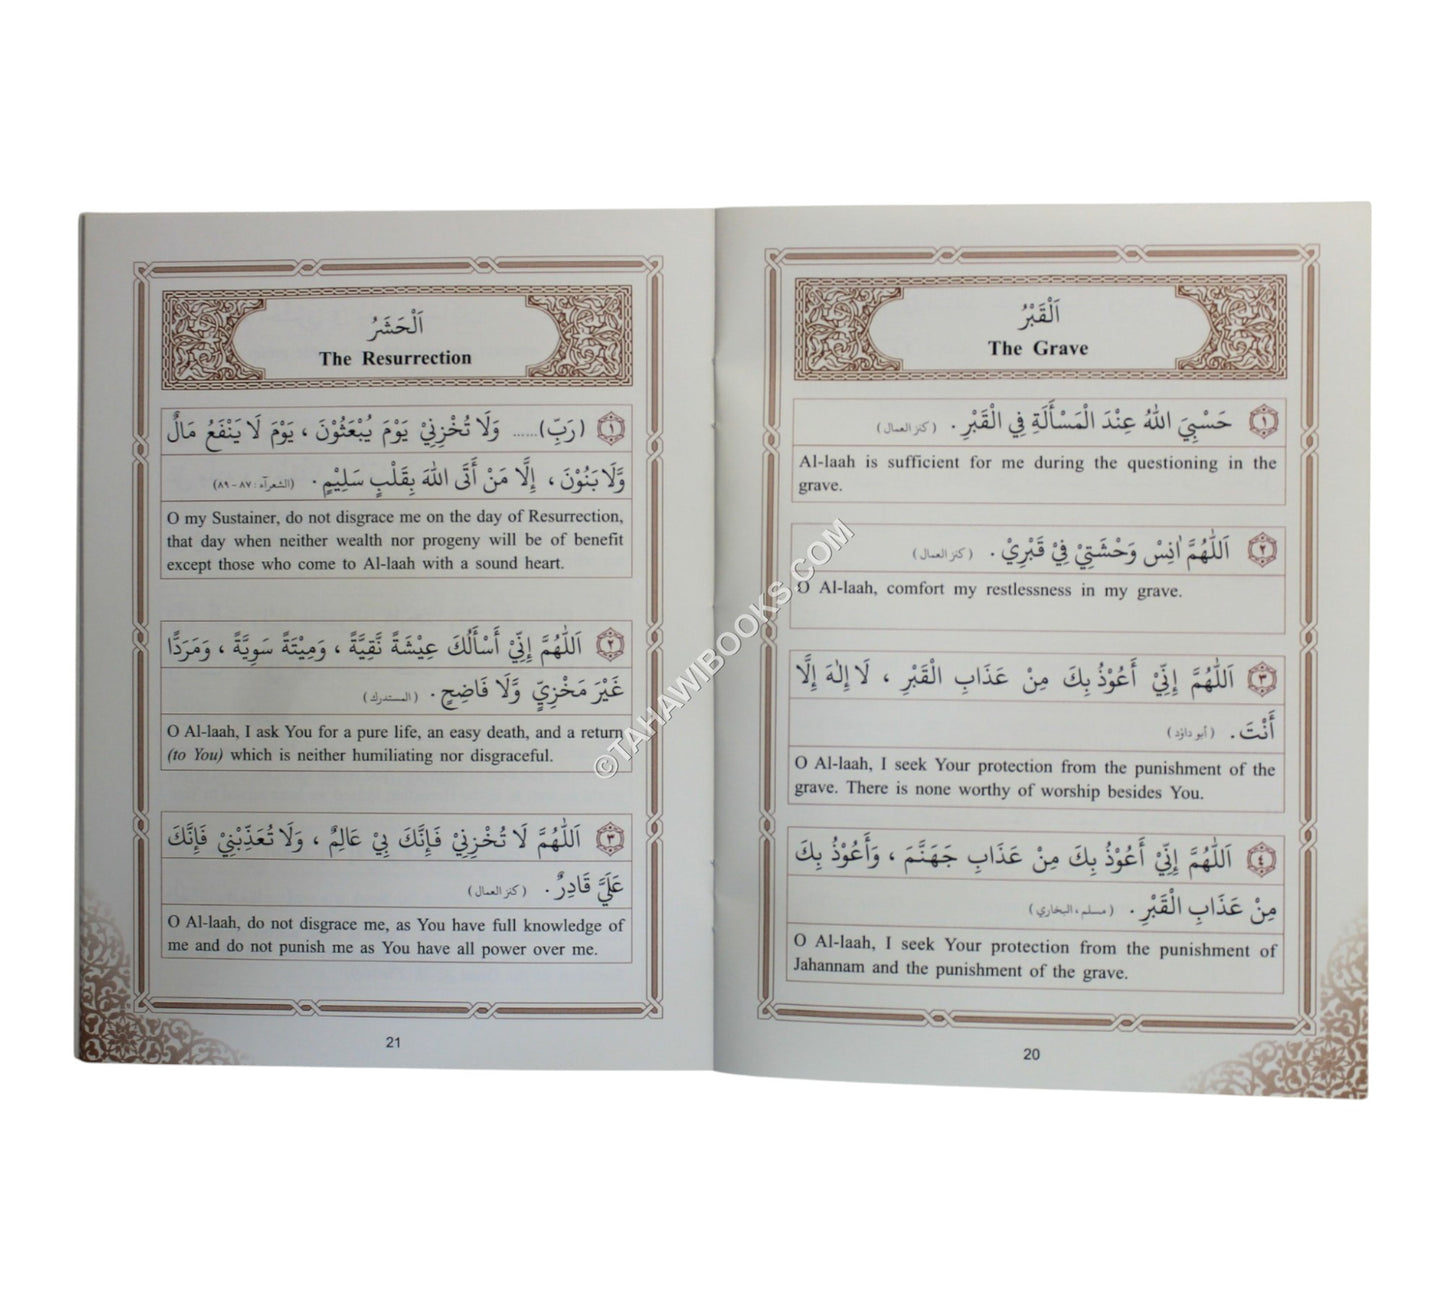 اَلْقَبْرُ
The Grave
١ حَسْبِيَ اللّٰهُ عِنْدَ الْمَسْأَلَةِ فِي الْقَبْرِ. (كنز العمال)
Al-laah is sufficient for me during the questioning in the
grave.
٢ اَللّٰهُمَّ اٰنِسْ وَحْشَتِيْ فِيْ قَبْرِيْ. (كنز العمال)
O Al-laah, comfort my restlessness in my grave.
٣ اَللّٰهُمَّ إِنِّيْ أَعُوْذُ بِكَ مِنْ عَذَابِ الْقَبْرِ ، لَا إِلٰهَ إِلَّا
أَنْتَ. (أبو داؤد)
O Al-laah, I seek Your protection from the punishment of the
grave. There is none worthy of worship besides You.
٤ اَللّٰهُمَّ إِنِّيْ أَعُوْذُ بِكَ مِنْ عَذَابِ جَهَنَّمَ ، وَأَعُوْذُ بِكَ
مِنْ عَذَابِ الْقَبْرِ. (مسلم، البخاري)
O Al-laah, I seek Your protection from the punishment of
Jahannam and the punishment of the grave.
20
اَلْحَشَرُ
The Resurrection
١ (رَبِّ)..... وَلَا تُخْزِنِيْ يَوْمَ يُبْعَثُوْنَ ، يَوْمَ لَا يَنْفَعُ مَالٌ
وَّلَا بَنُوْنَ ، إِلَّا مَنْ أَتَى اللّٰهَ بِقَلْبٍ سَلِيْمٍ. (الشعرآء: ٨٧-٨٩)
O my Sustainer, do not disgrace me on the day of Resurrection,
that day when neither wealth nor progeny will be of benefit
except those who come to Al-laah with a sound heart.
٢ اَللّٰهُمَّ إِنِّيْ أَسْأَلُكَ عِيْشَةً نَّقِيَّةً ، وَمِيْتَةً سَوِيَّةً ، وَمَرَدًّا
غَيْرَ مَخْزِيٍّ وَّلَا فَاضِحٍ. (المستدرك)
O Al-laah, I ask You for a pure life, an easy death, and a return
(to You) which is neither humiliating nor disgraceful.
٣ اَللّٰهُمَّ لَا تُخْزِنِيْ فَإِنَّكَ بِيْ عَالِمٌ ، وَلَا تُعَذِّبْنِيْ فَإِنَّكَ
عَلَيَّ قَادِرٌ. (كنز العمال)
O Al-laah, do not disgrace me, as You have full knowledge of
me and do not punish me as You have all power over me.
21
©TAHAWIBOOKS.COM